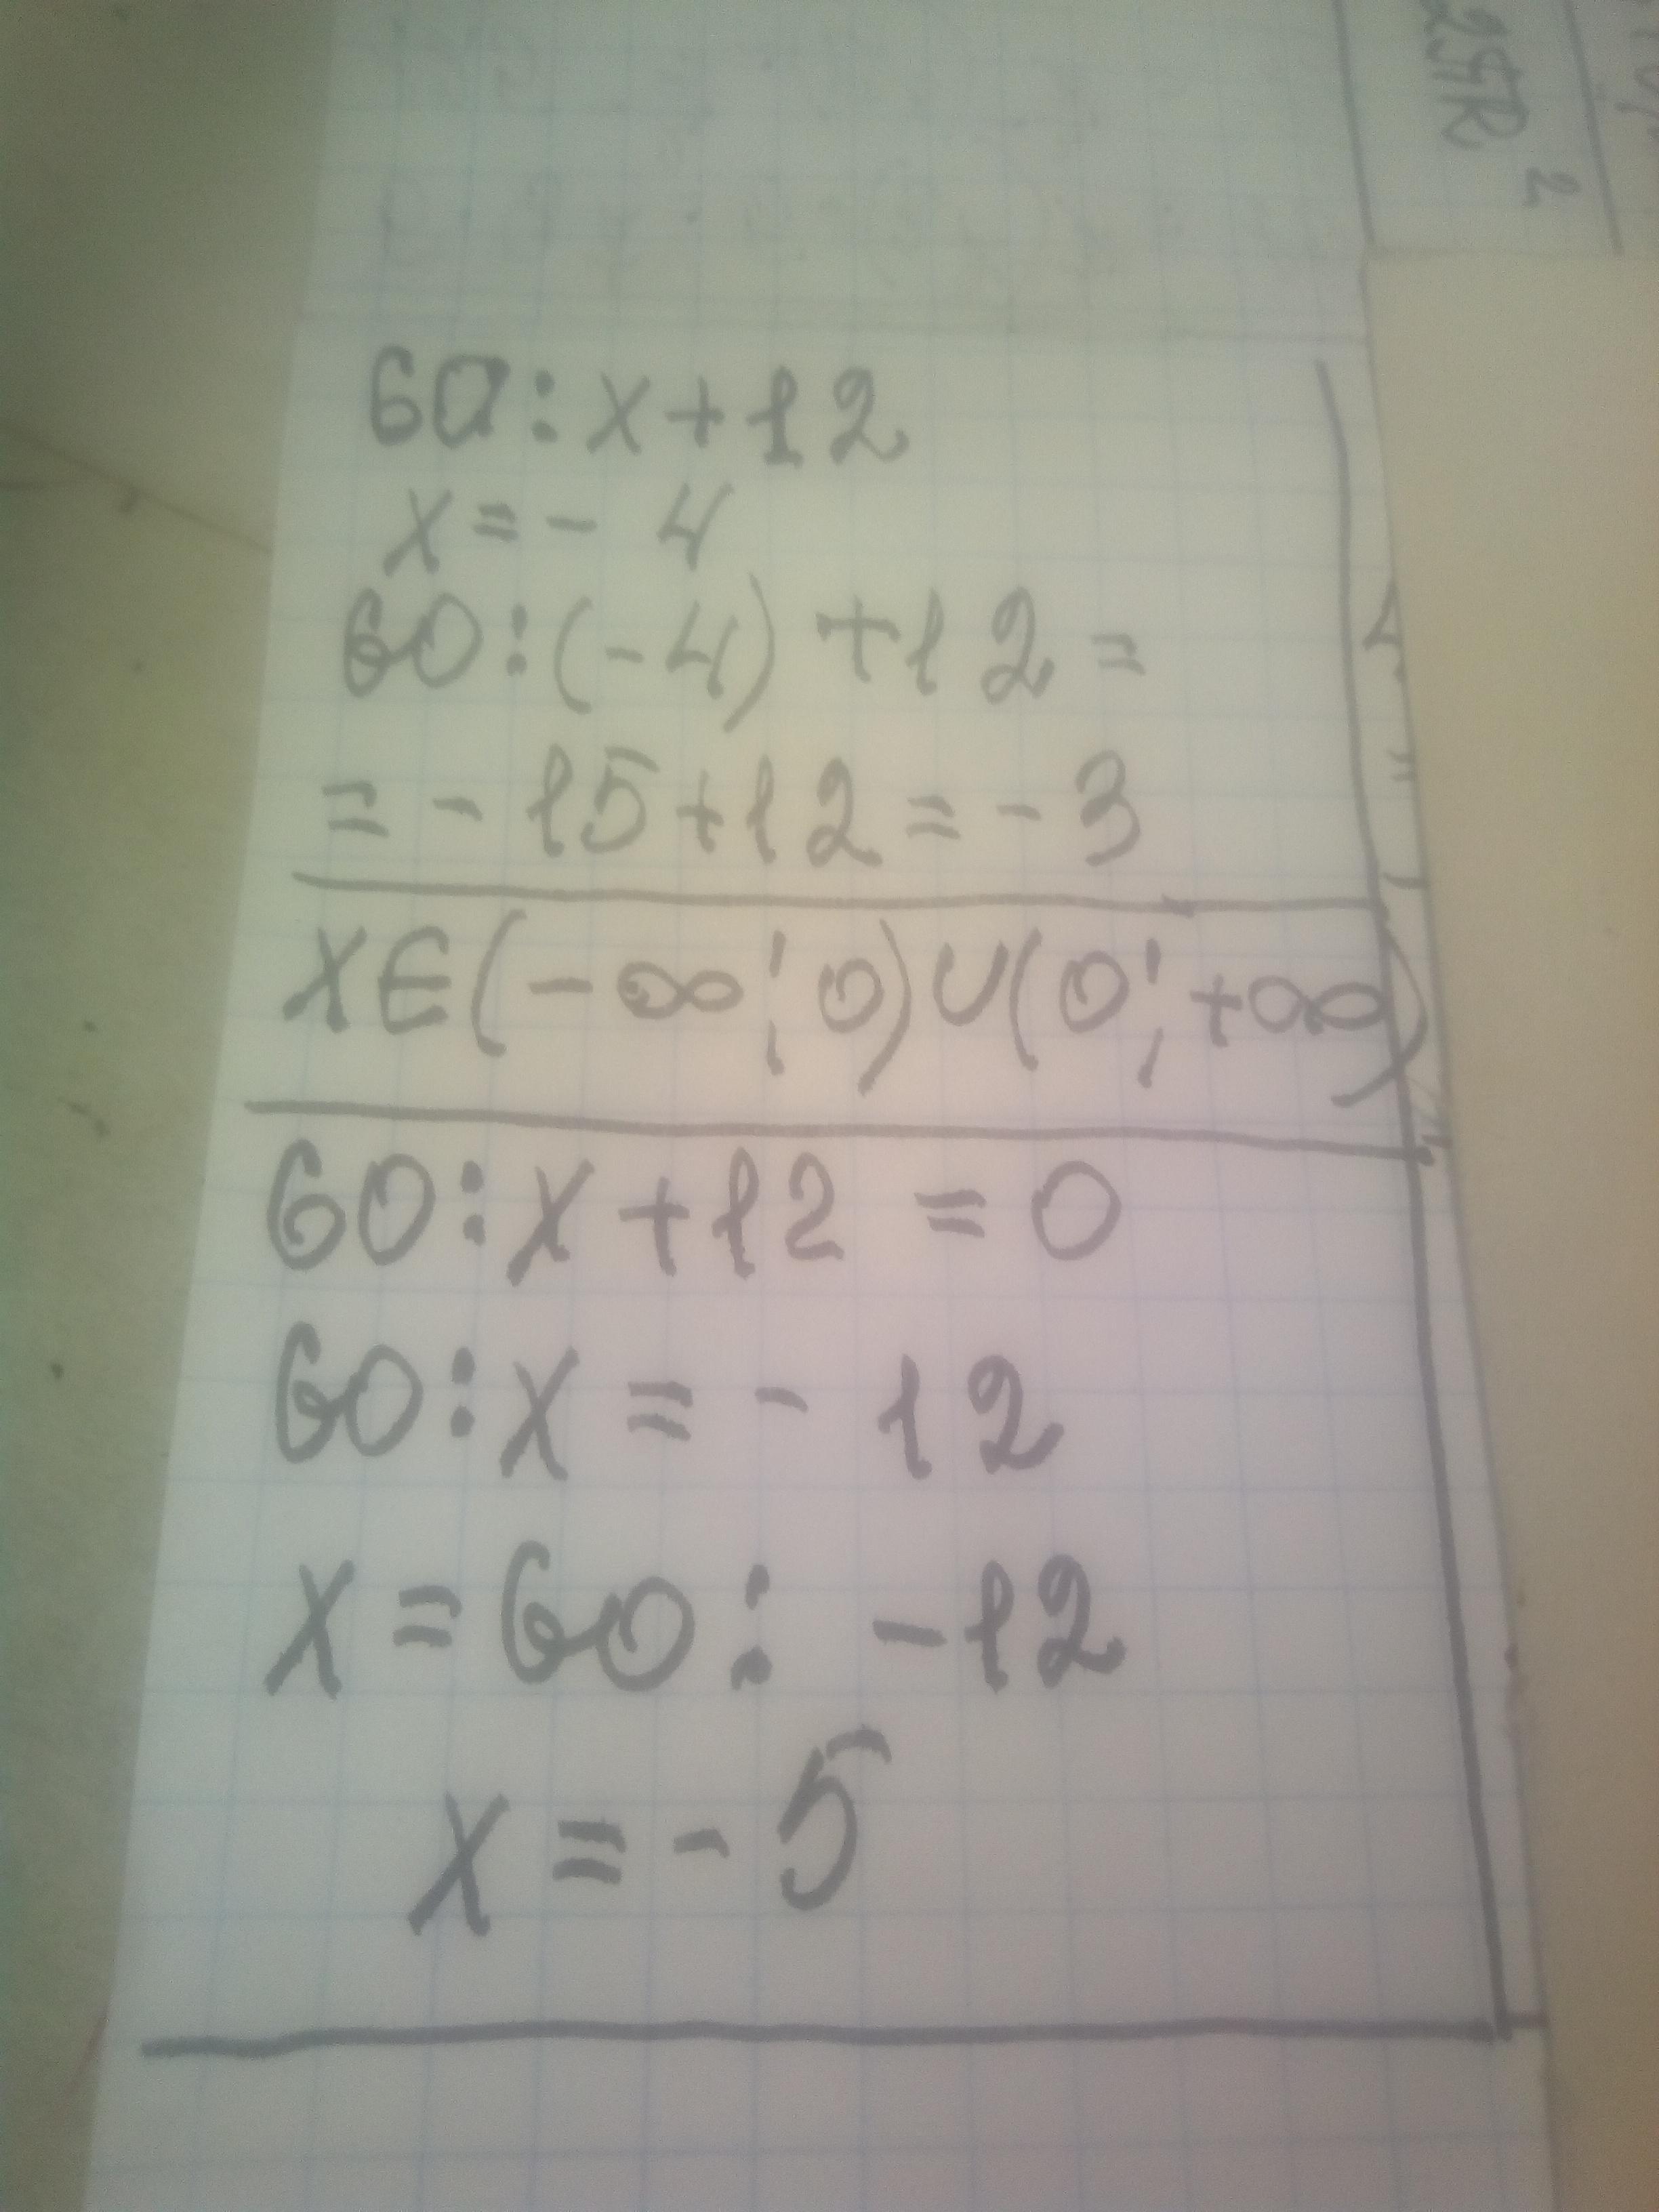 25R 2
60:x+12
x=- 4
60:(-4)+12=
=-15+12=-3
x∈(-∞;0)∪(0;+∞)
60:x+12=0
60:x=-12
x=60: -12
x=-5